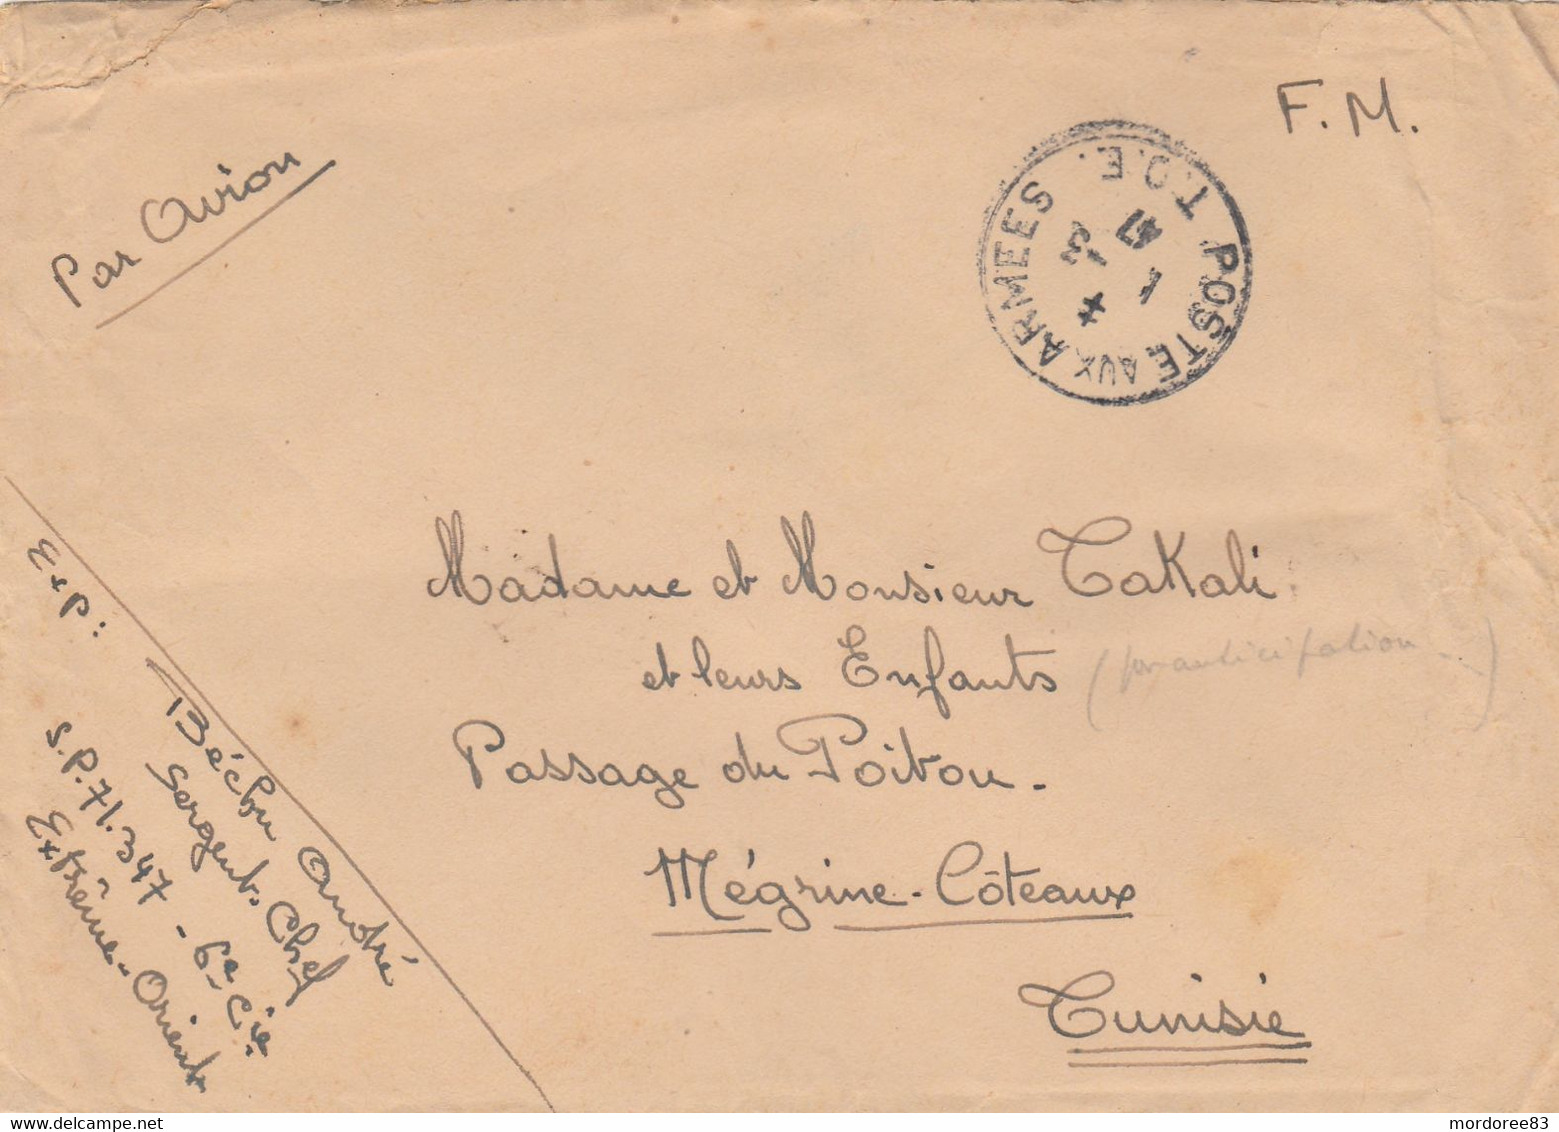 F. M.
Par Avion
POSTE AUX ARMEES
T.O.E.
*
1
3
47
Madame et Monsieur Takali
et leurs Enfants (par anticipation...)
Passage du Poitou.
Mégrine-Côteaux
Tunisie
Exp:
Béchu André
Sergent-Chef
S.P. 71.347 - 6e Cie
Extrême-Orient
www.delcampe.net
mordoree83